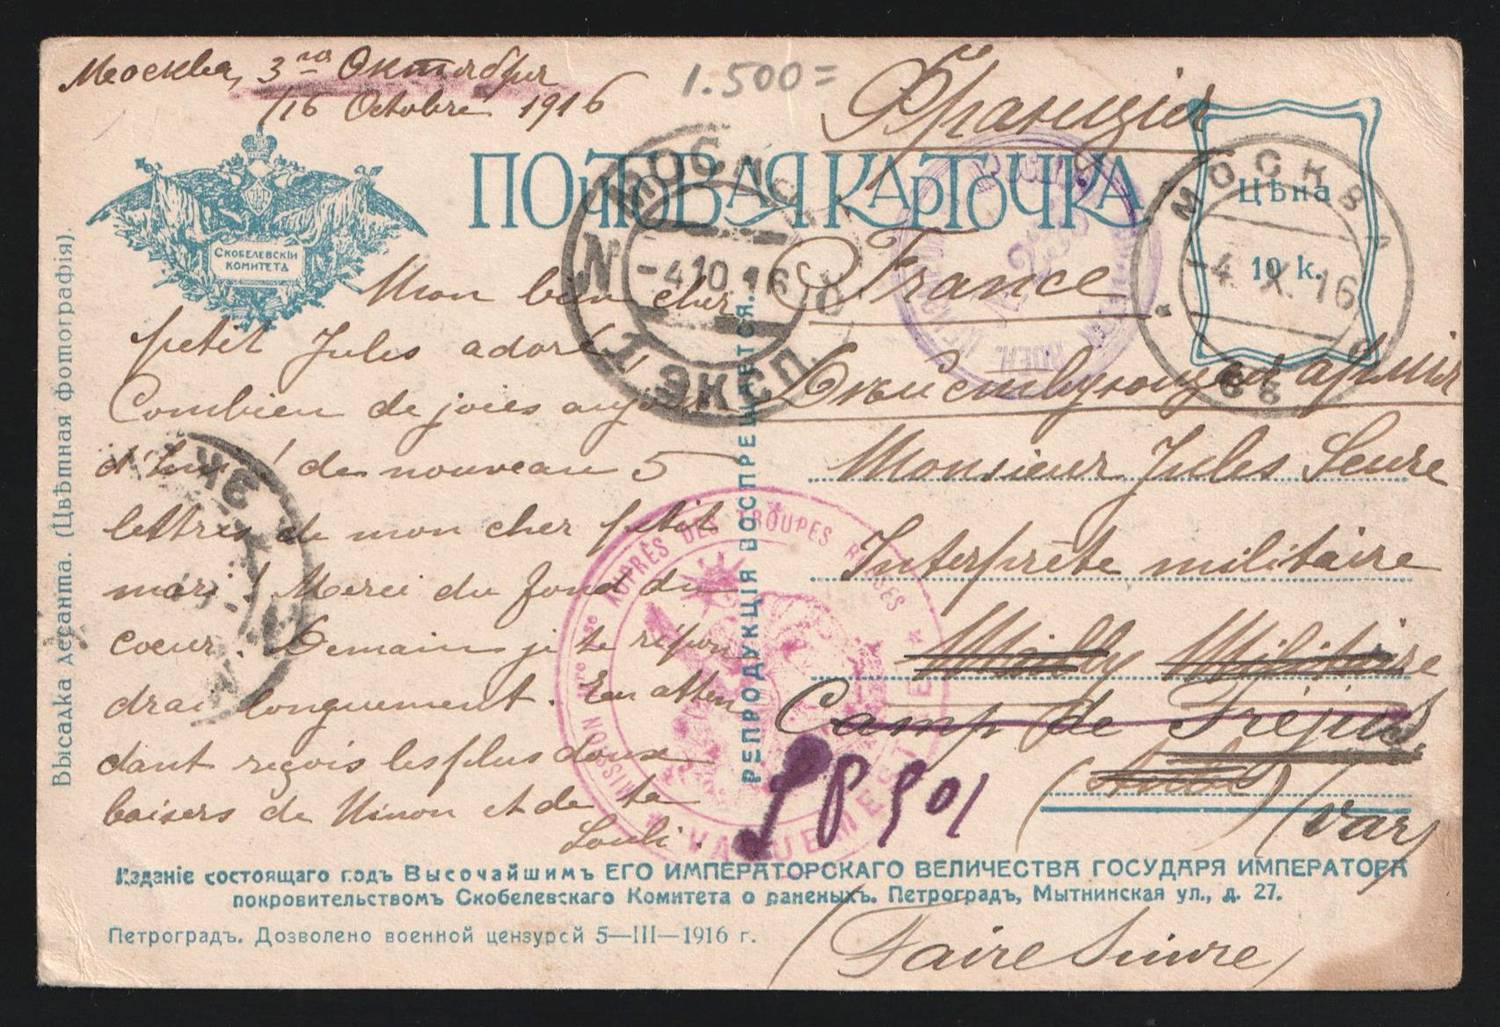 Москва, 3го Октября
/16 Octobre 1916
1.500=
Франція
ПОЧТОВАЯ КАРТОЧКА
СКОБЕЛЕВСКІЙ
КОМИТЕТЪ
МОСКВА
4 X. 16
Цѣна
10 к.
МОСКВА
-4.10.16
ЭКСП.
France
Дѣйствующая армія
Monsieur Jules Seure
Interprète militaire
Mailly Militaire
Camp de Fréjus
(Aube) (Var)
SP 501
(Faire suivre)
Mon bien cher
petit Jules adoré!
Combien de joies aujour
d'hui! de nouveau 5
lettres de mon cher petit
mari! Merci du fond du
coeur. Demain je te répon
drai longuement. En atten
dant reçois les plus doux
baisers de Ninon et de ta
Louli.
MISSION FRse AUPRÈS DES TROUPES RUSSES
VAGUEMESTRE
РЕПРОДУКЦІЯ ВОСПРЕЩАЕТСЯ.
Высадка десанта. (Цвѣтная фотографія).
Изданіе состоящаго подъ Высочайшимъ ЕГО ИМПЕРАТОРСКАГО ВЕЛИЧЕСТВА ГОСУДАРЯ ИМПЕРАТОРА
покровительствомъ Скобелевскаго Комитета о раненыхъ. Петроградъ, Мытнинская ул., д. 27.
Петроградъ. Дозволено военной цензурой 5—III—1916 г.